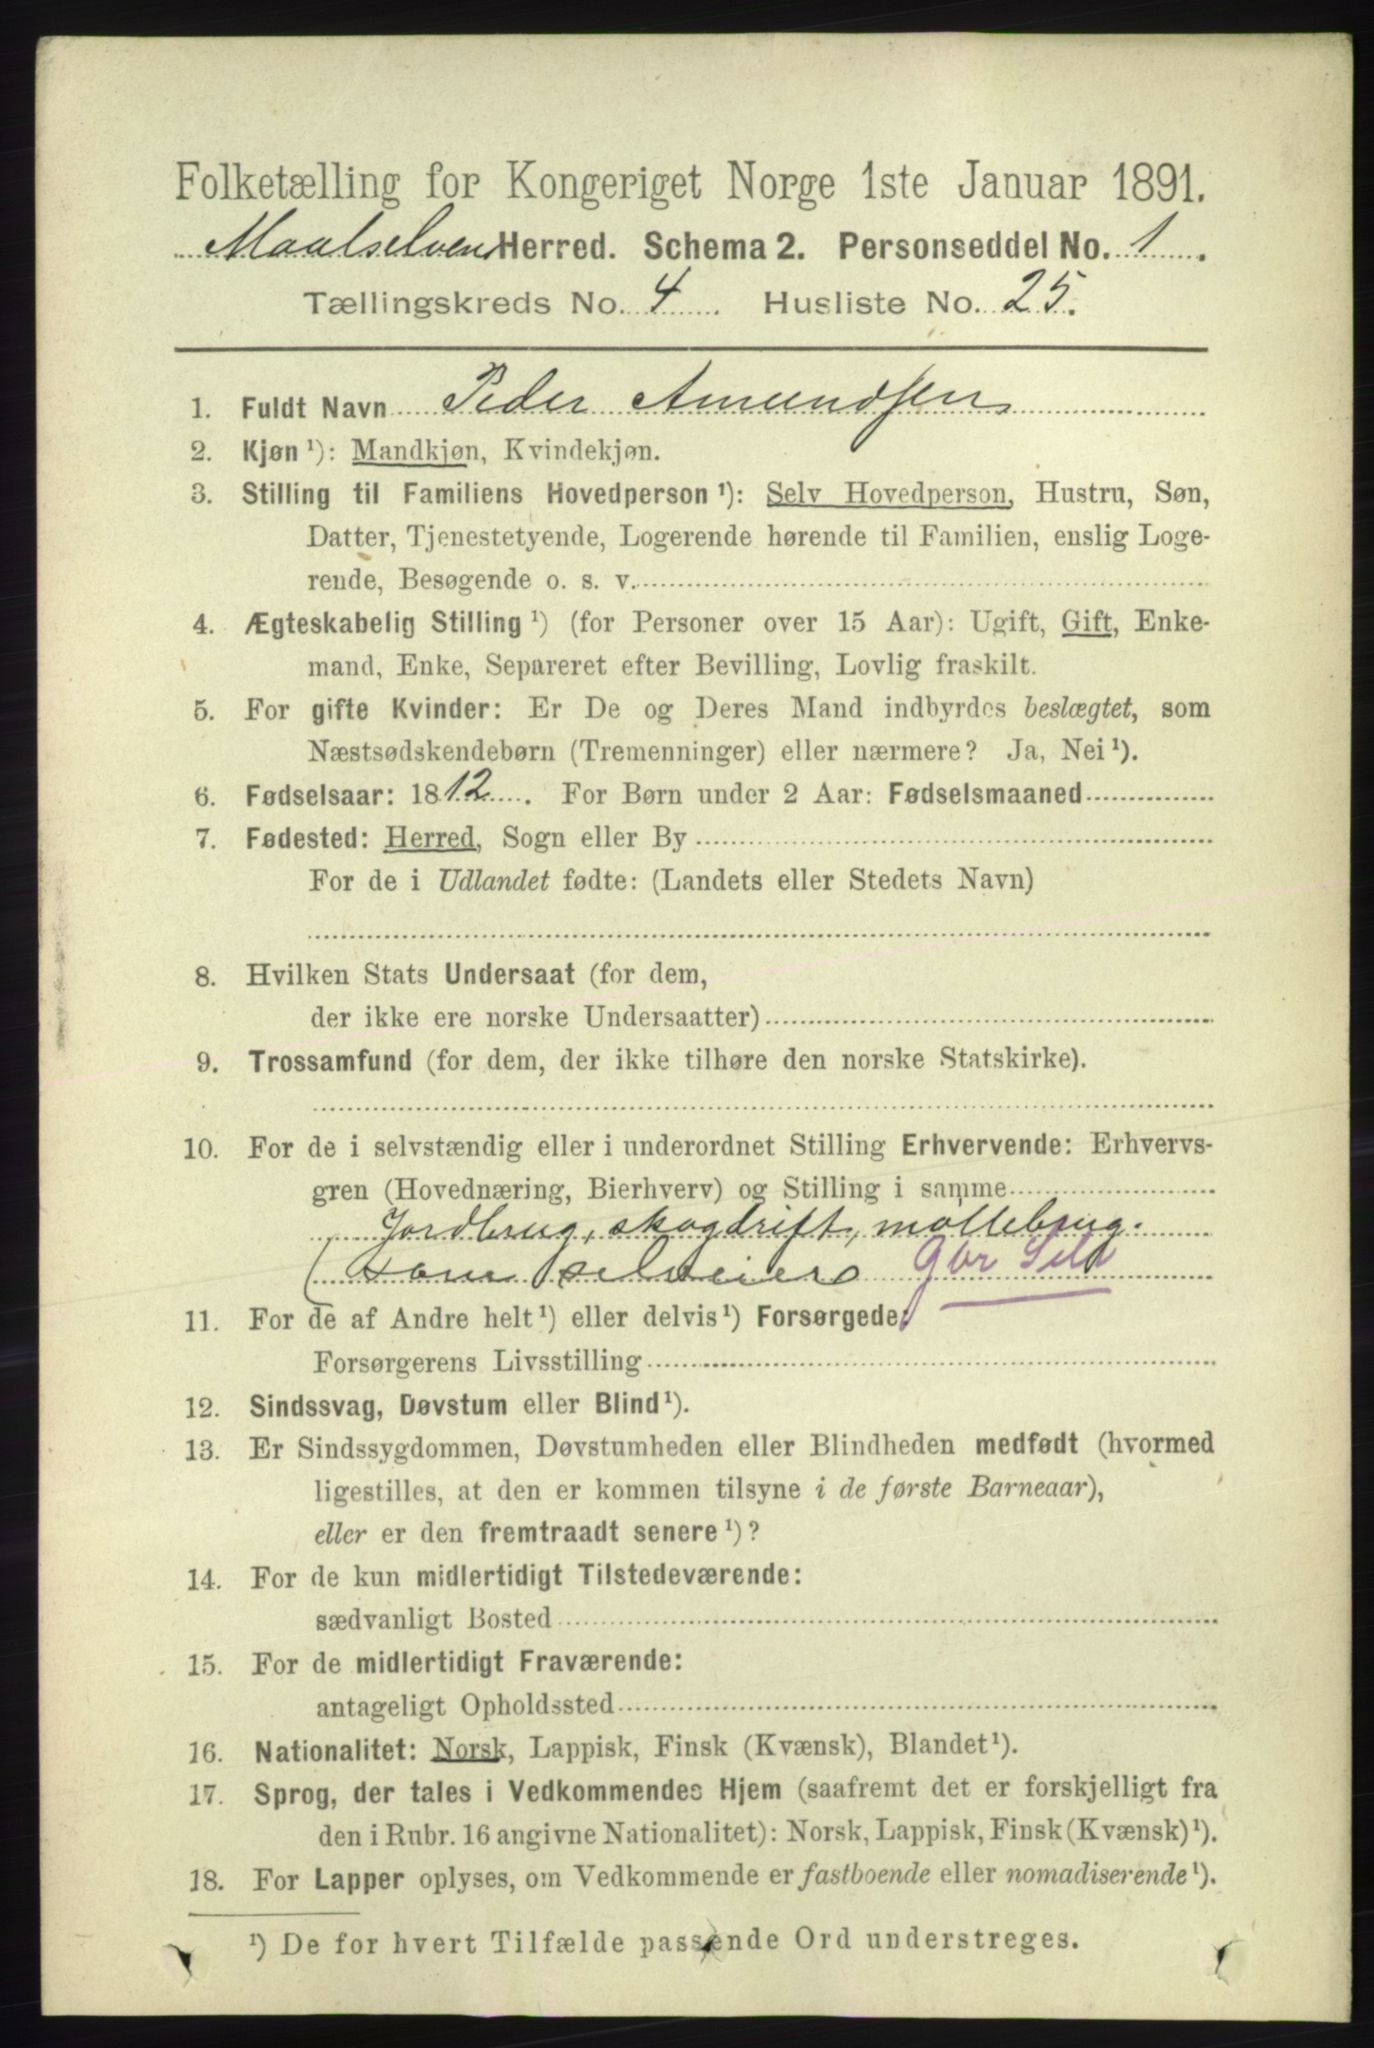 Folketælling for Kongeriget Norge 1ste Januar 1891.
Maalselven Herred. Schema 2. Personseddel No. 1.
Tællingskreds No. 4. Husliste No. 25.
1. Fuldt Navn Peder Amundsen
2. Kjøn ¹): Mandkjøn, Kvindekjøn.
3. Stilling til Familiens Hovedperson ¹): Selv Hovedperson, Hustru, Søn,
Datter, Tjenestetyende, Logerende hørende til Familien, enslig Loge-
rende, Besøgende o. s. v.
4. Ægteskabelig Stilling ¹) (for Personer over 15 Aar): Ugift, Gift, Enke-
mand, Enke, Separeret efter Bevilling, Lovlig fraskilt.
5. For gifte Kvinder: Er De og Deres Mand indbyrdes beslægtet, som
Næstsødskendebørn (Tremenninger) eller nærmere? Ja, Nei ¹).
6. Fødselsaar: 1812. For Børn under 2 Aar: Fødselsmaaned
7. Fødested: Herred, Sogn eller By
For de i Udlandet fødte: (Landets eller Stedets Navn)
8. Hvilken Stats Undersaat (for dem,
der ikke ere norske Undersaatter)
9. Trossamfund (for dem, der ikke tilhøre den norske Statskirke).
10. For de i selvstændig eller i underordnet Stilling Erhvervende: Erhvervs-
gren (Hovednæring, Bierhverv) og Stilling i samme
Jordbrug, skogdrift, møllebrug.
(som selveier Gbr Selv
11. For de af Andre helt ¹) eller delvis ¹) Forsørgede:
Forsørgerens Livsstilling
12. Sindssvag, Døvstum eller Blind ¹).
13. Er Sindssygdommen, Døvstumheden eller Blindheden medfødt (hvormed
ligestilles, at den er kommen tilsyne i de første Barneaar),
eller er den fremtraadt senere ¹)?
14. For de kun midlertidigt Tilstedeværende:
sædvanligt Bosted
15. For de midlertidigt Fraværende:
antageligt Opholdssted
16. Nationalitet: Norsk, Lappisk, Finsk (Kvænsk), Blandet ¹).
17. Sprog, der tales i Vedkommendes Hjem (saafremt det er forskjelligt fra
den i Rubr. 16 angivne Nationalitet): Norsk, Lappisk, Finsk (Kvænsk) ¹).
18. For Lapper oplyses, om Vedkommende er fastboende eller nomadiserende ¹).
¹) De for hvert Tilfælde passende Ord understreges.